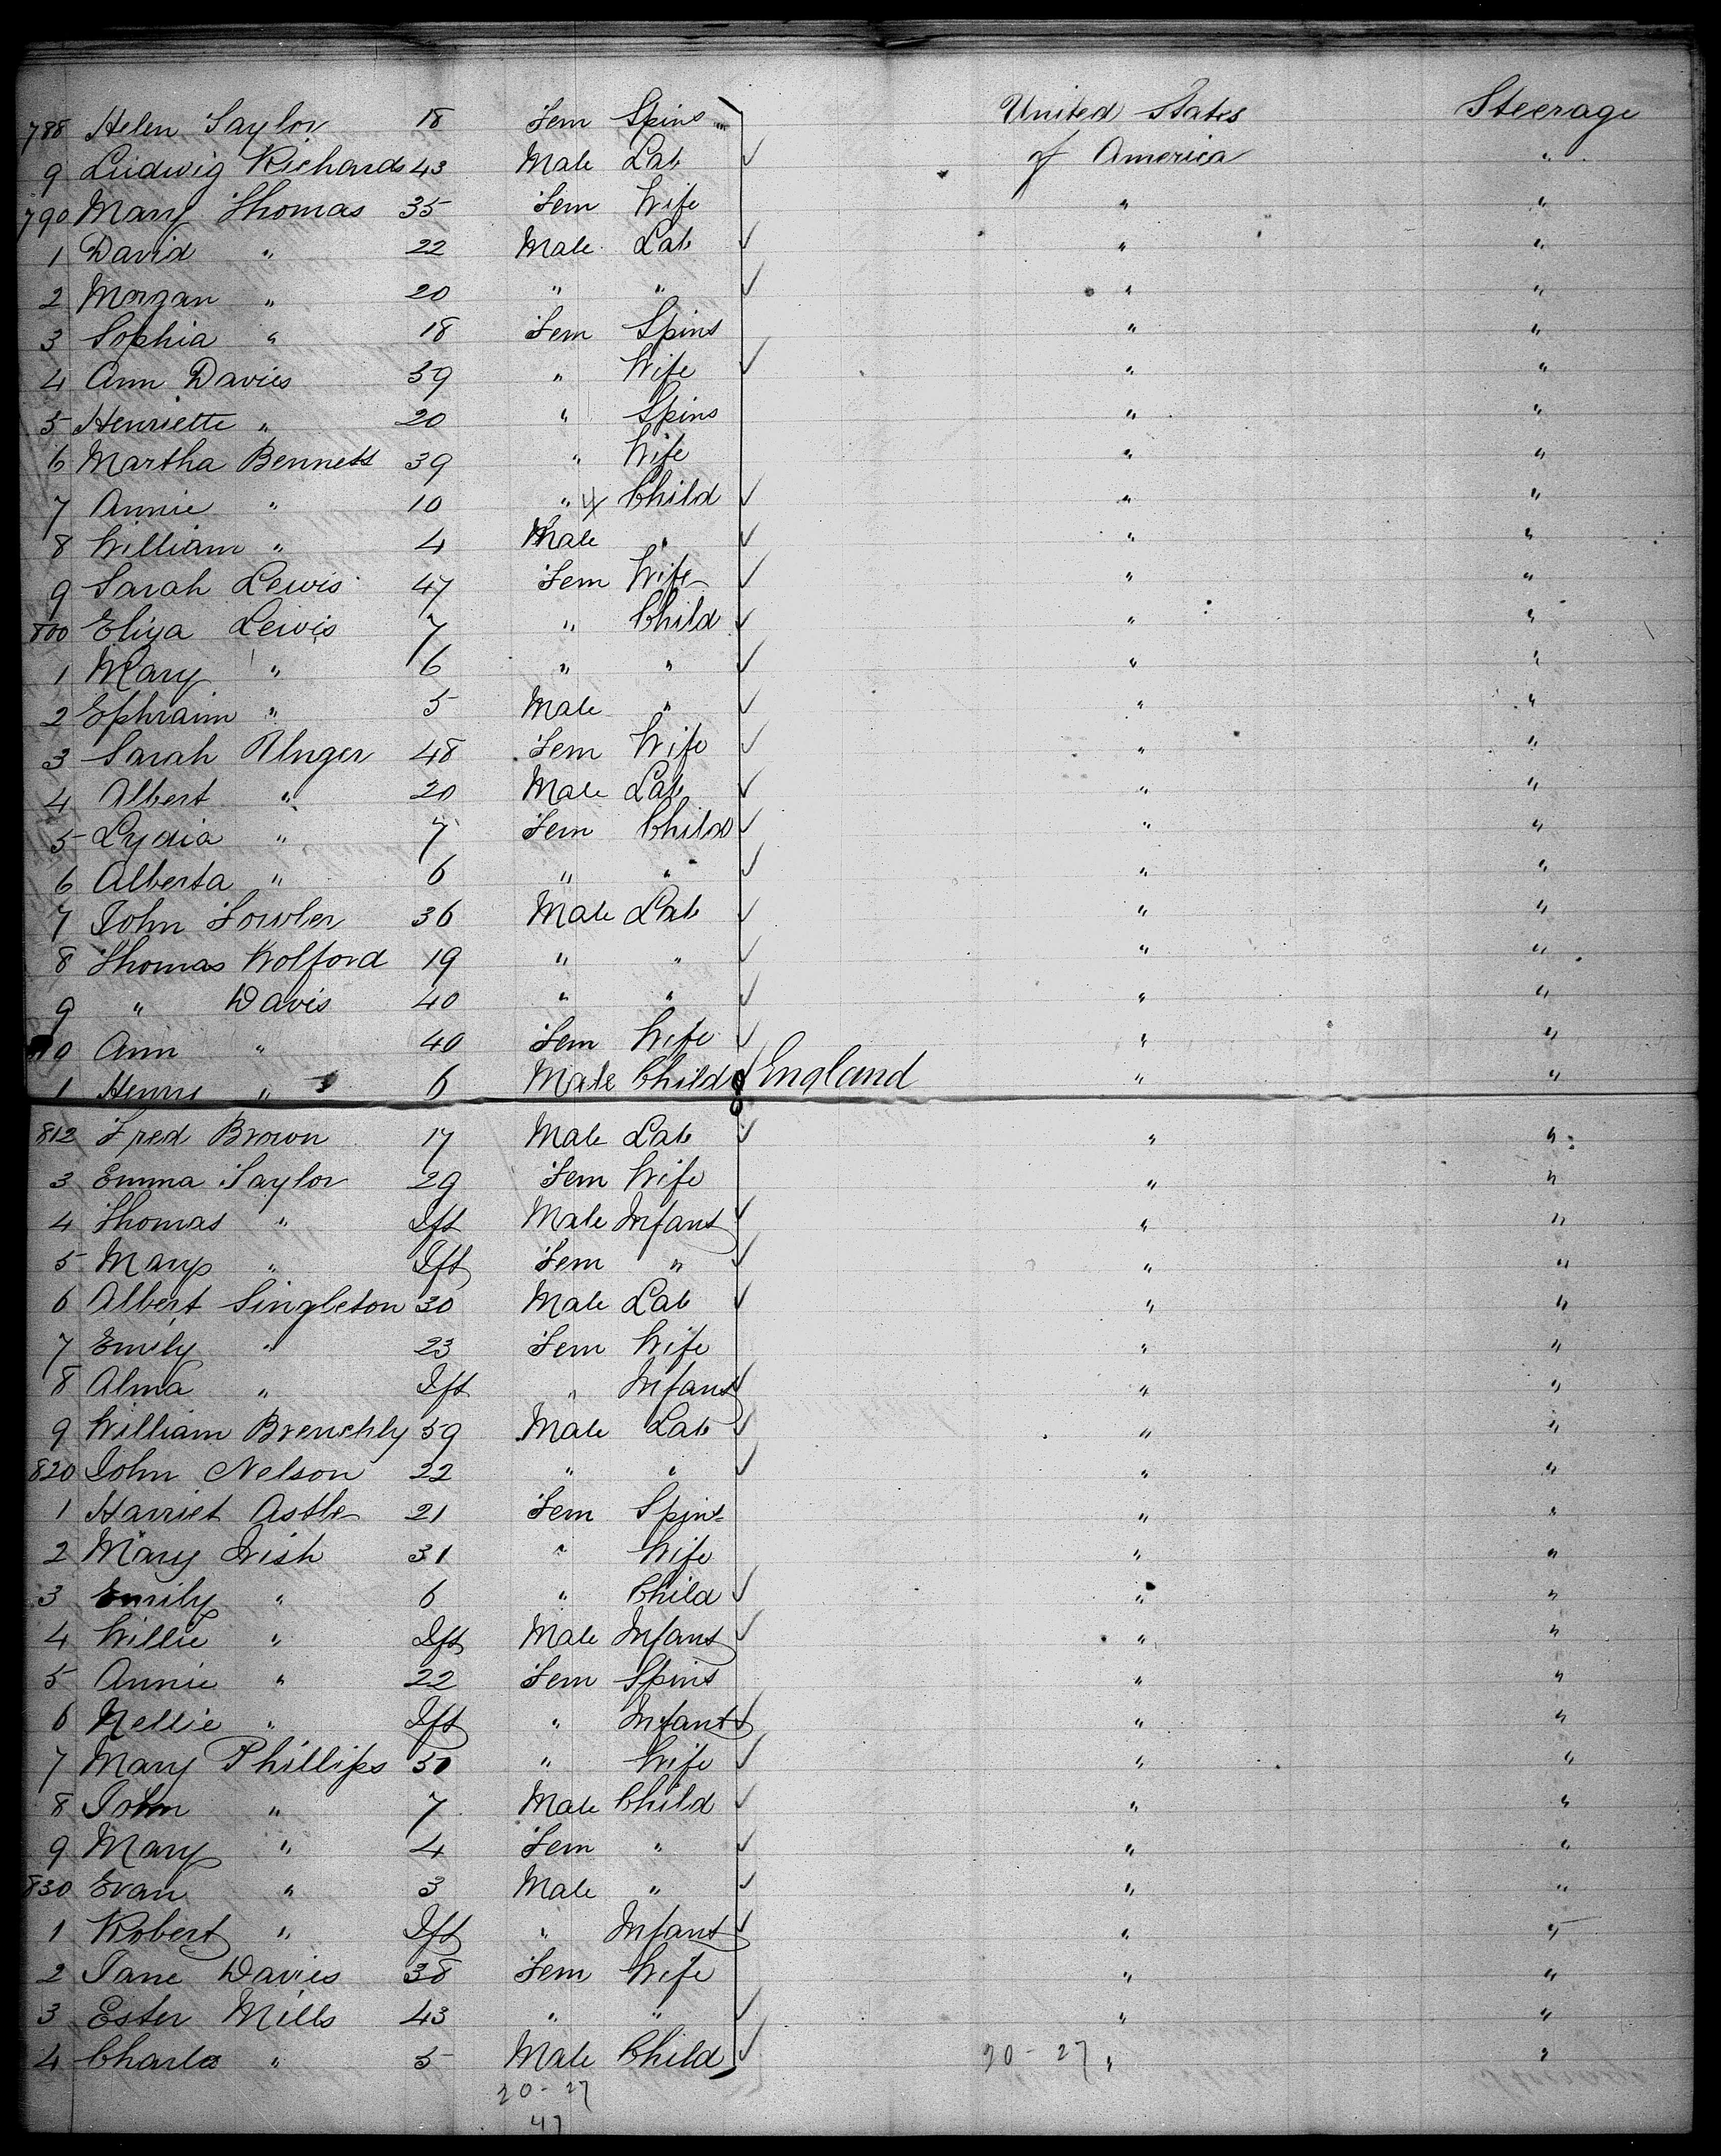 788 Helen Taylor 18 Fem Spins United States Steerage
9 Ludwig Richards 43 Male Lab of America "
790 Mary Thomas 35 Fem Wife " "
1 David " 22 Male Lab " "
2 Morgan " 20 " " " "
3 Sophia " 18 Fem Spins " "
4 Ann Davies 39 " Wife " "
5 Henriette " 20 " Spins " "
6 Martha Bennett 39 " Wife " "
7 Annie " 10 " Child " "
8 William " 4 Male " " "
9 Sarah Lewis 47 Fem Wife " "
800 Eliza Lewis 7 " Child " "
1 Mary " 6 " " " "
2 Ephraim " 5 Male " " "
3 Sarah Unger 48 Fem Wife " "
4 Albert " 20 Male Lab " "
5 Lydia " 7 Fem Child " "
6 Alberta " 6 " " " "
7 John Fowler 36 Male Lab " "
8 Thomas Wolford 19 " " " "
9 " Davis 40 " " " "
10 Ann " 40 Fem Wife " "
1 Henry " 6 Male Child England " "
812 Fred Brown 17 Male Lab " "
3 Emma Taylor 29 Fem Wife " "
4 Thomas " Ift Male Infant " "
5 Mary " Ift Fem " " "
6 Albert Singleton 30 Male Lab " "
7 Emily " 23 Fem Wife " "
8 Alma " Ift " Infant " "
9 William Brenchly 59 Male Lab " "
820 John Nelson 22 " " " "
1 Harriet Astle 21 Fem Spins " "
2 Mary Irish 31 " Wife " "
3 Emily " 6 " Child " "
4 Willie " Ift Male Infant " "
5 Annie " 22 Fem Spins " "
6 Nellie " Ift " Infant " "
7 Mary Phillips 30 " Wife " "
8 John " 7 Male Child " "
9 Mary " 4 Fem " " "
830 Evan " 3 Male " " "
1 Robert " Ift " Infant " "
2 Jane Davies 38 Fem Wife " "
3 Ester Mills 43 " " " "
4 Charles " 5 Male Child 20-27 " "
20-27
47